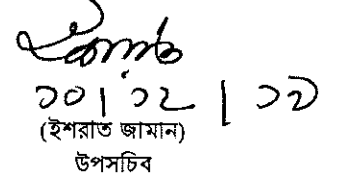 ১০|১২|১৩
(ইশরাত জামান)
উপসচিব